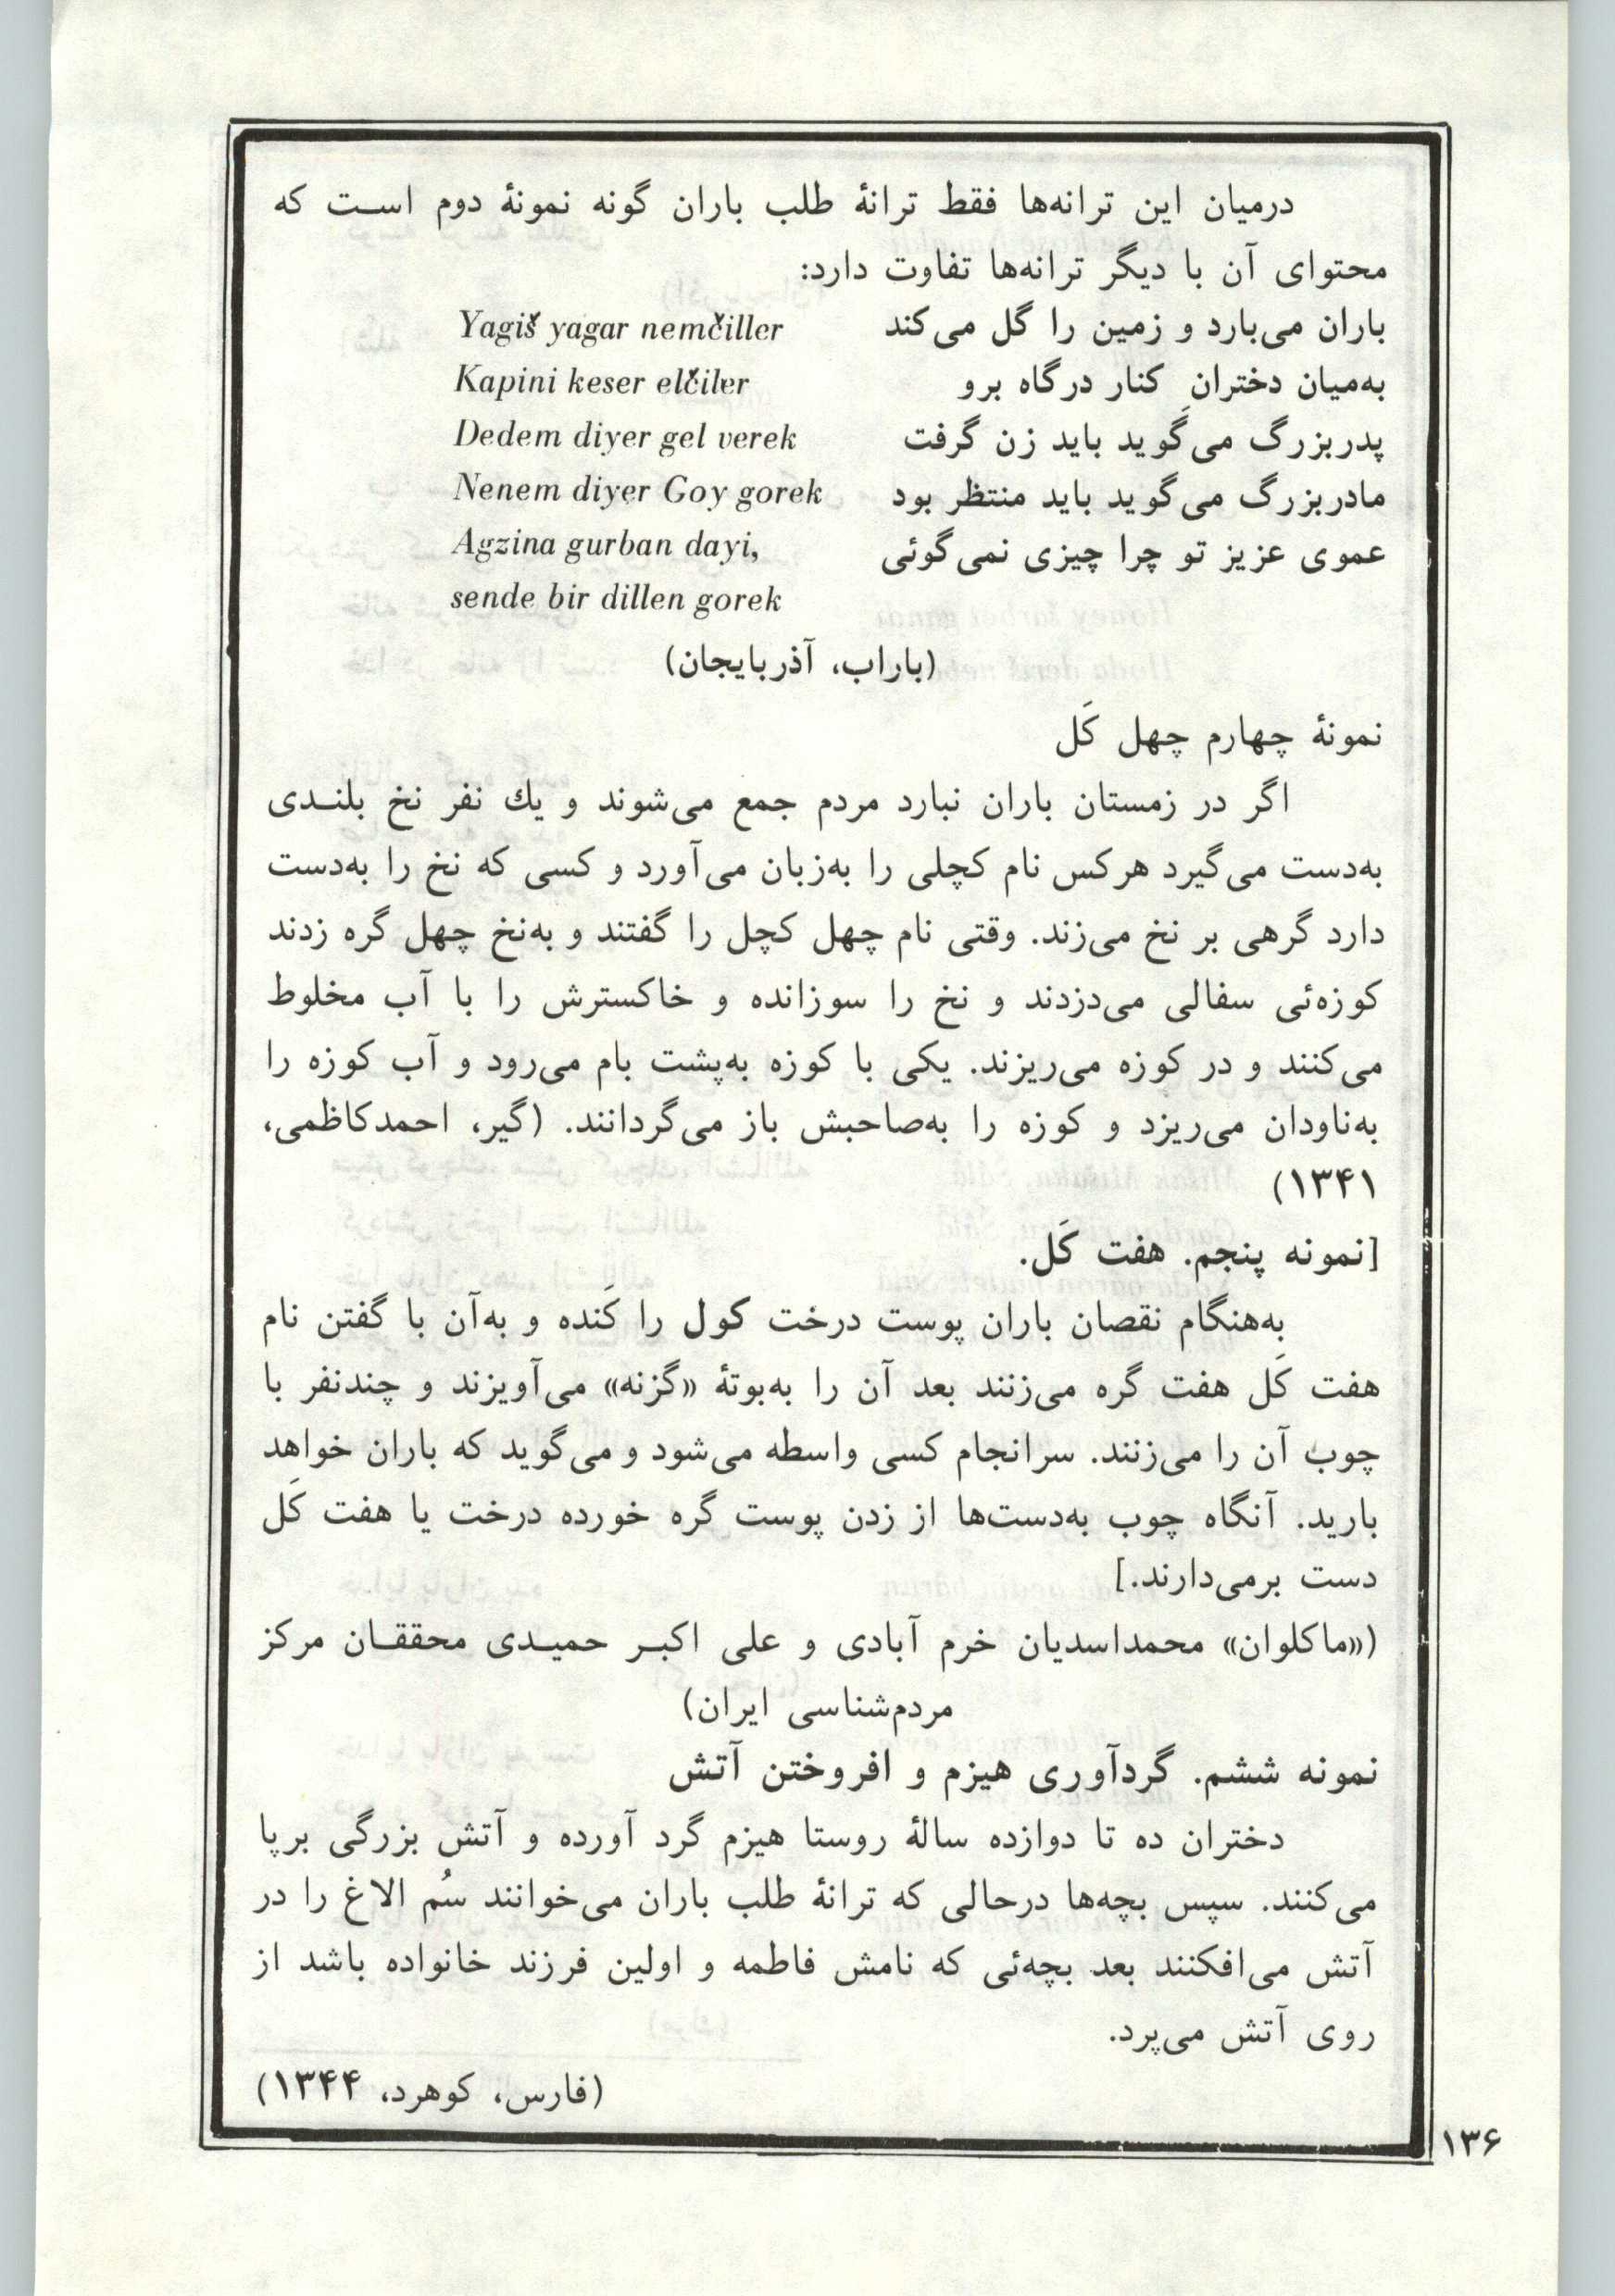 درمیان این ترانه‌ها فقط ترانهٔ طلب باران گونه نمونهٔ دوم است که
محتوای آن با دیگر ترانه‌ها تفاوت دارد:
باران می‌بارد و زمین را گل می‌کند Yagiš yagar nemčiller
به‌میان دختران کنار درگاه برو Kapini keser elčiler
پدربزرگ می‌گوید باید زن گرفت Dedem diyer gel verek
مادربزرگ می‌گوید باید منتظر بود Nenem diyer Goy gorek
عموی عزیز تو چرا چیزی نمی‌گوئی Agzina gurban dayi,
sende bir dillen gorek
(باراب، آذربایجان)
نمونهٔ چهارم چهل کَل
اگر در زمستان باران نبارد مردم جمع می‌شوند و یك نفر نخ بلندی
به‌دست می‌گیرد هرکس نام کچلی را به‌زبان می‌آورد و کسی که نخ را به‌دست
دارد گرهی بر نخ می‌زند. وقتی نام چهل کچل را گفتند و به‌نخ چهل گره زدند
کوزه‌ئی سفالی می‌دزدند و نخ را سوزانده و خاکسترش را با آب مخلوط
می‌کنند و در کوزه می‌ریزند. یکی با کوزه به‌پشت بام می‌رود و آب کوزه را
به‌ناودان می‌ریزد و کوزه را به‌صاحبش باز می‌گردانند. (گیر، احمدکاظمی،
۱۳۴۱)
[نمونه پنجم. هفت کَل.
به‌هنگام نقصان باران پوست درخت کول را کَنده و به‌آن با گفتن نام
هفت کَل هفت گره می‌زنند بعد آن را به‌بوتهٔ «گزنه» می‌آویزند و چندنفر با
چوب آن را می‌زنند. سرانجام کسی واسطه می‌شود و می‌گوید که باران خواهد
بارید. آنگاه چوب به‌دست‌ها از زدن پوست گره خورده درخت یا هفت کَل
دست برمی‌دارند.]
(«ماکلوان» محمداسدیان خرم آبادی و علی اکبر حمیدی محققان مرکز
مردم‌شناسی ایران)
نمونه ششم. گردآوری هیزم و افروختن آتش
دختران ده تا دوازده سالهٔ روستا هیزم گرد آورده و آتش بزرگی برپا
می‌کنند. سپس بچه‌ها درحالی که ترانهٔ طلب باران می‌خوانند سُم الاغ را در
آتش می‌افکنند بعد بچه‌ئی که نامش فاطمه و اولین فرزند خانواده باشد از
روی آتش می‌پرد.
(فارس، کوهرد، ۱۳۴۴)
۱۳۶